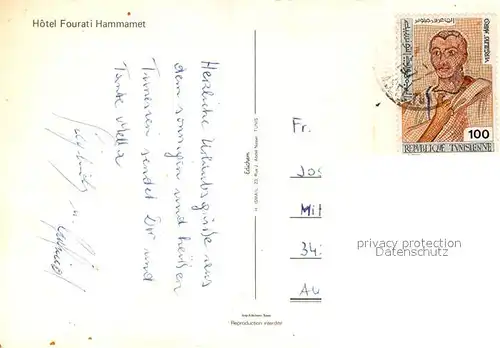 Hôtel Fourati Hammamet
Herzliche Urlaubsgrüße aus
dem sonnigen und heißen
Tunesien sendet Dir und
Tante Mella
Edichem
H. ISMAIL 23, Rue J. André Nessler - TUNIS
Reproduction interdite
VIRGILIUS MARO
100
REPUBLIQUE TUNISIENNE
Fr.
Jos
Mit
34
Au
privacy protection
Datenschutz